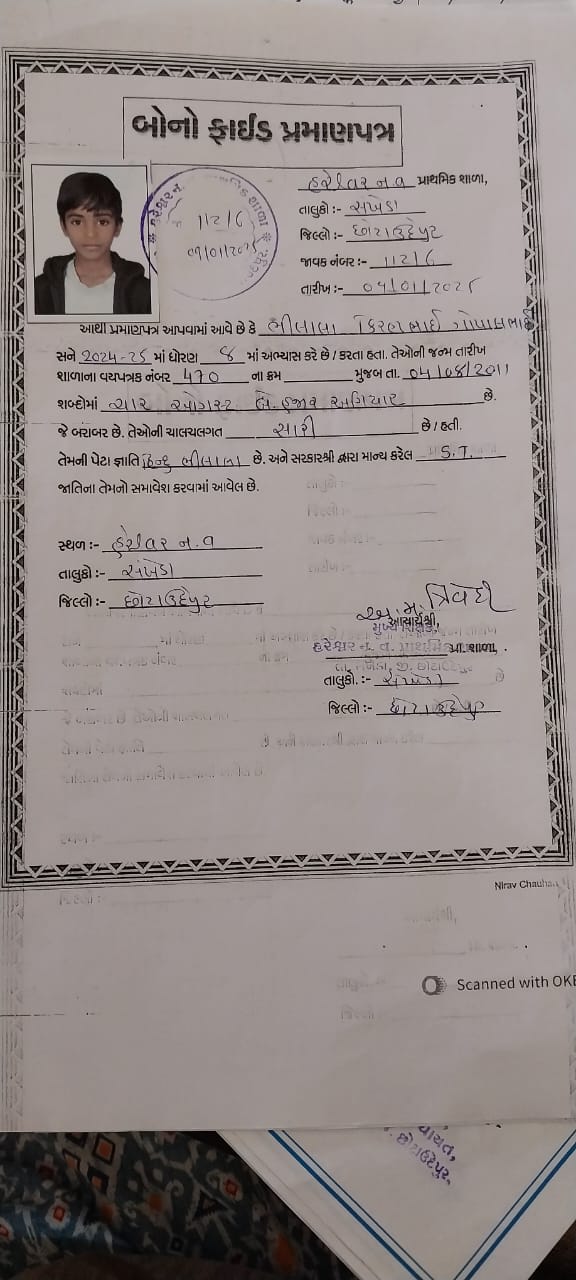 બોનો ફાઈડ પ્રમાણપત્ર
હરેશ્વર ન.વ પ્રાથમિક શાળા,
તાલુકો :- સંખેડા
જિલ્લો :- છોટાઉદેપુર
જાવક નંબર :- 112/6
તારીખ :- 04/01/2025
112/6
આથી પ્રમાણપત્ર આપવામાં આવે છે કે ભીલાલા કિરણભાઈ ગોપાલભાઈ
સને 2024-25 માં ધોરણ 8 માં અભ્યાસ કરે છે / કરતા હતા. તેઓની જન્મ તારીખ
શાળાના વયપત્રક નંબર 470 ના ક્રમ મુજબ તા. 04/08/2011
શબ્દોમાં ચાર ઓગસ્ટ બે હજાર અગિયાર છે.
જે બરાબર છે. તેઓની ચાલચલગત સારી છે / હતી.
તેમની પેટા જ્ઞાતિ હિન્દુ ભીલાલા છે. અને સરકારશ્રી દ્વારા માન્ય કરેલ S.T.
જાતિના તેમનો સમાવેશ કરવામાં આવેલ છે.
સ્થળ :- હરેશ્વર ન.વ
તાલુકો :- સંખેડા
જિલ્લો :- છોટાઉદેપુર
અ. મ. ત્રિવેદી
આચાર્યશ્રી,
મુખ્ય શિક્ષક,
હરેશ્વર ન. વ. પ્રાથમિક પ્રા. શાળા,
તા. સંખેડા, જી. છોટાઉદેપુર
તાલુકો. :- સંખેડા
જિલ્લો :- છોટાઉદેપુર
Nirav Chauha
Scanned with OKE
છોટાઉદેપુર